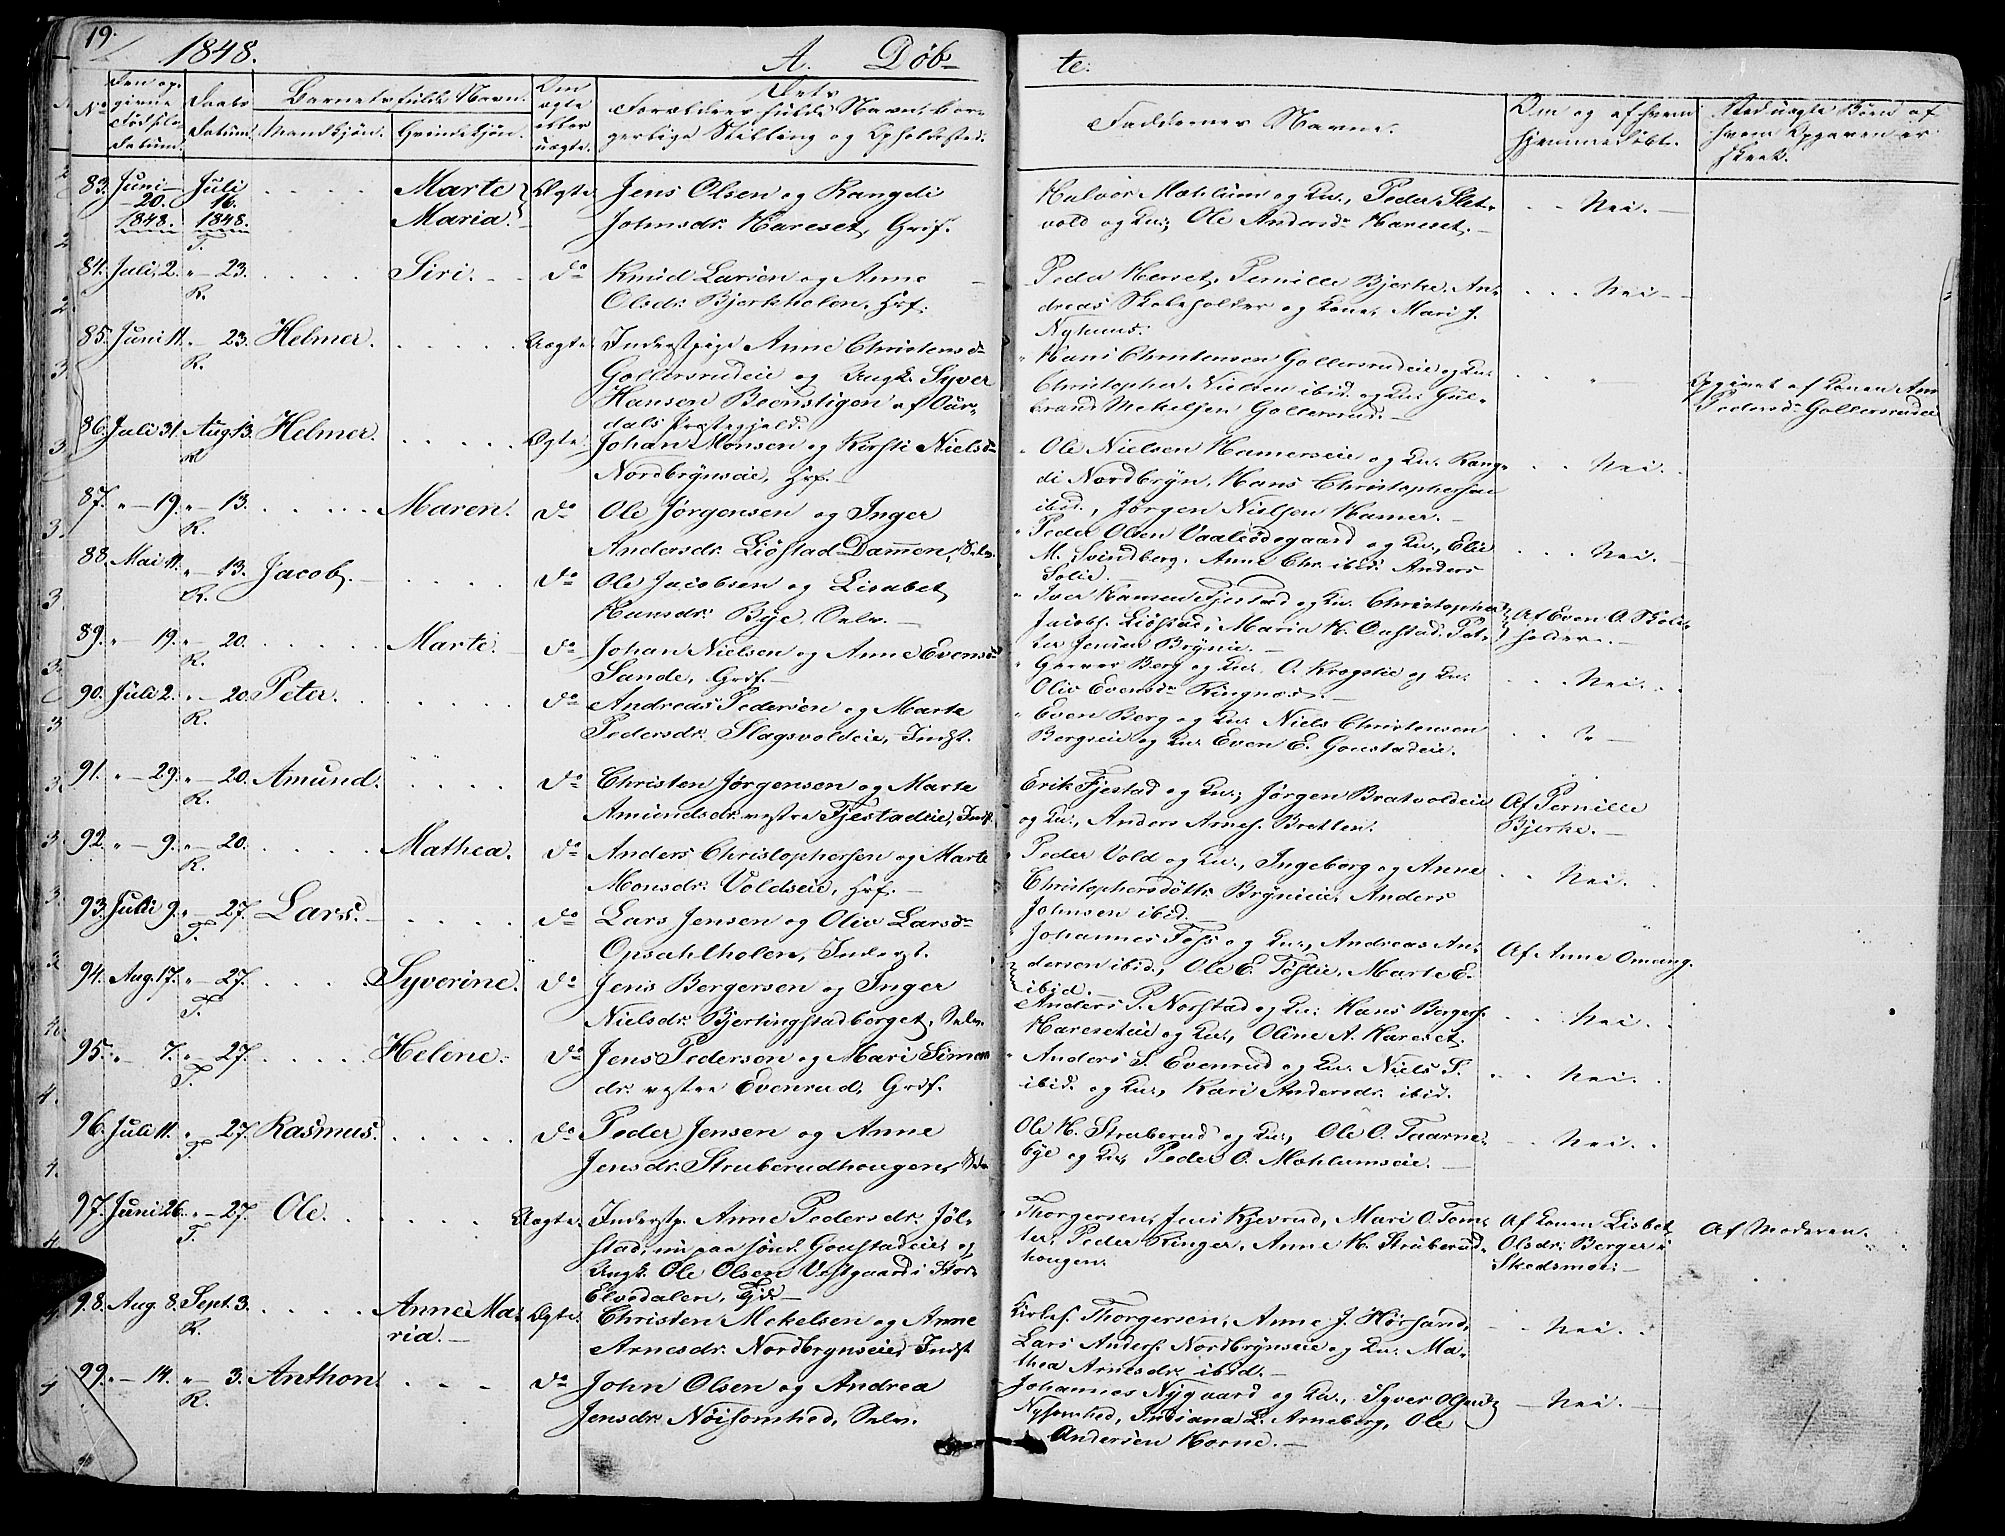 19.
1848. A. Døb-
te.
No Den op- givne Fødsels- Datum. Daabs Datum. Barnets fulde Navn. Mandkjøn. Qvindekjøn. Om ægte eller uægte. Forældres fulde Navn, bor- gerlige Stilling og Opholdssted.
Faddernes Navne. Om og af hvem hjemmedøbt. Ved uægte Børn af hvem Opgaven er skeet.
83. Juni 20. 1848. Juli 16. 1848. T. Marte Maria. Ægte. Jens Olsen og Rangdi
Johnsdr. Hareset, Grf.
Halvor Mæhlum og Qu., Peder Slet-
vold og Qu., Ole Andersdr. Hareset. Nei.
84. Juli 2. " 23. R. Siri. do Knud Larsen og Anne
Olsdr. Bjerkholen, Hrf.
Peder Herset, Pernille Bjerke, An-
dreas Skoleholder og Kone, Mari J. Nei
Nyhuus.
85. Juni 11. " 23. R. Helmer. Uægte. Inderstpige Anne Christensdr
Gollersrudeie og Ungk. Syver
Hansen Beenstigen af Our-
dals Præstegjeld.
Hans Christensen Gollersrudeie og Qu.
Christopher Nielsen ibid. og Qu. Gul- "
brand Mekelsen Gollersrud.
Opgivet af Konen Ane
Pedersdr. Gollersrudeie
86. Juli 31. Aug. 13. R Helmer. Ægte. Johan Monsen og Kirsti Nielsdr
Nordbrynseie, Hrf.
Ole Nielsen Hamerseie og Qu. Rang-
di Nordbryn, Hans Christophersen Nei.
ibid., Jørgen Nielsen Hamer.
87. " 19. " 13. R. Maren. do Ole Jørgensen og Inger
Andersdr. Liøstad Dammen, Selv.
Peder Olsen Vaaliødegaard og Qu., Elie
M. Svindberg, Anne Chr. ibid. Anders Nei.
Solie.
88. Mai 11. " 13. R. Jacob. do Ole Jacobsen og Lisabet
Hansdr. Bye, Selv.
Iver Hansen Fjestad og Qu. Christopher
Jacobs. Liøstad, Maria H. Onstad. Pet-
ter Jensen Brynie.
Af Even O. Skole-
holder.
89. " 19. " 20. R. Marte. do Johan Nielsen og Anne Evensdr
Sande, Grf.
Gorver Berg og Qu. O. Krogstie og Qu.
Oliv Evensdr Ringnæs. Nei.
90. Juli 2. " 20. R. Peter. do Andreas Pedersen og Marte
Pedersdr. Slagsvoldeie, Indst.
Even Berg og Qu. Niels Christensen
Bergseie og Qu. Even E. Gonstadeie. "
91. " 29. " 20. R. Amund. do Christen Jørgensen og Marte
Amundsdr. vestre Fjestadeie, Indst.
Erik Fjestad og Qu., Jørgen Bratvoldeie
og Qu., Anders Arnes. Bretten.
Af Pernille
Bjerke.
92. " 9. " 20. R. Mathea. do Anders Christophersen og Marte
Monsdr. Voldseie, Hrf.
Peder Vold og Qu., Ingeborg og Anne
Christophersdøttr. Brynieie, Anders Nei.
Johnsen ibid.
93. Juli 9. " 27. T. Lars. do Lars Jensen og Oliv Larsdr
Opsahlholen, Inderst.
Johannes Foss og Qu., Andreas An-
dersen ibid., Ole E. Tøstie, Marte E. Af Anne Omang.
ibid.
94. Aug. 17. " 27. T. Syverine. do Jens Bergersen og Inger
Nielsdr. Bjertingstadberget, Selv.
Anders P. Norstad og Qu. Hans Bergers.
Hareseteie og Qu., Oline A. Hareset. Nei.
95. " 7. " 27. T. Helene. do Jens Pedersen og Mari Simon
dr. vestre Evenrud, Grf.
Anders S. Evenrud og Qu. Niels S.
ibid. og Qu., Kari Andersdr. ibid. Nei.
96. Juli 11. " 27. T. Rasmus. do Peder Jensen og Anne
Jensdr. Struberudhougen, Selv
Ole H. Struberud og Qu., Ole O. Taarne-
bye og Qu. Peder O. Mæhlumseie. Nei.
97. Juni 26. " 27. T. Ole. Uægte. Inderstp. Anne Pedersdr. Jøl-
stad, nu paa sønd. Gonstadeie, og
Ungk. Ole Olsen Vestgaard i Stor-
Elvedalen, Tjd.
Thorgersen, Jens Kjevrud, Mari O. Tom-
ter, Peder Ringer, Anne H. Struberud-
hougen.
Af Konen Lisbet
Olsdr. Berger i
Skedsmoe.
Af Moderen.
98. Aug. 8. Sept. 3. R. Anne Ma-
ria. Ægte. Christen Mekelsen og Anne
Arnesdr. Nordbrynseie, Indst
Thorgersen, Anne J. Hørsand,
Lars Anders. Nordbrynseie og Qu. Ma- Nei.
thea Arnesdr. ibid.
99. " 14. " 3. R. Anthon. do John Olsen og Andrea
Jensdr. Nøisomhed, Selv.
Johannes Nygaard og Qu., Syver
Nøisomhed, Indiana L. Arneberg, Ole Nei.
Andersen Horne.